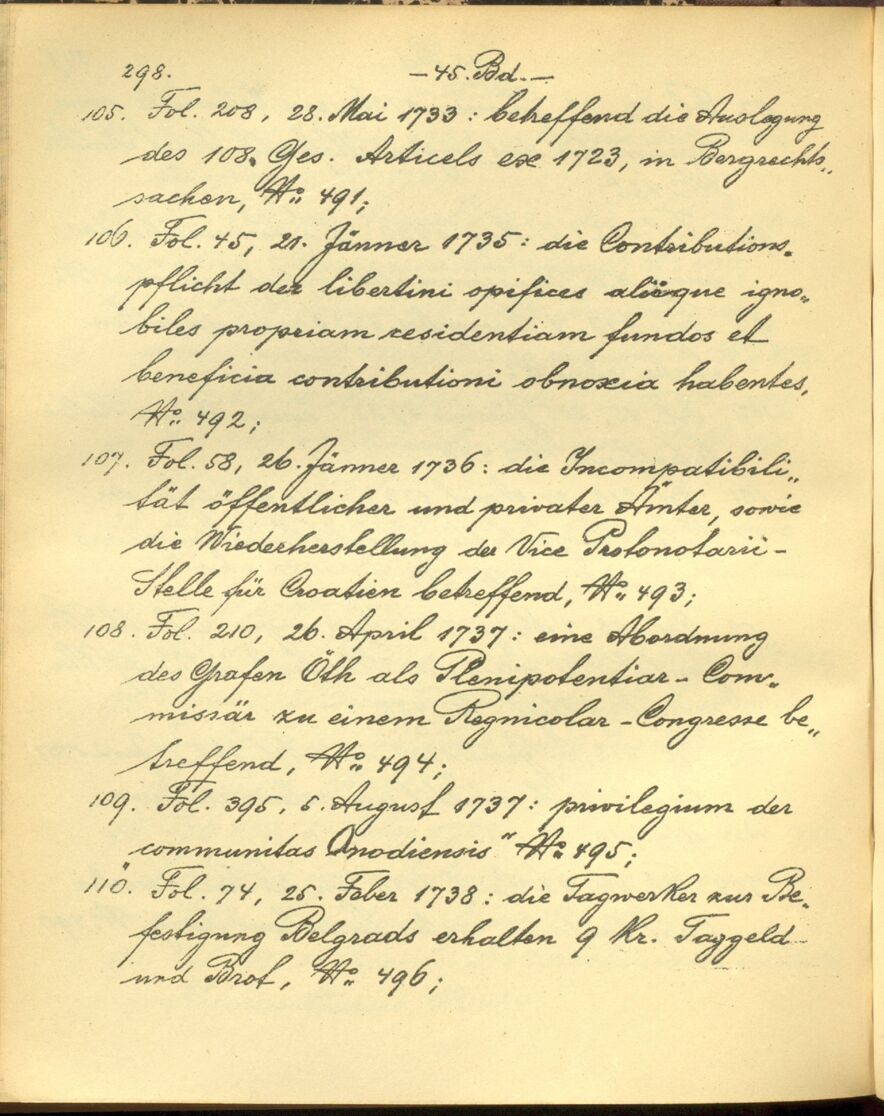 298. — 45. Bd. —
105. Fol. 208, 28. Mai 1733: betreffend die Auslegung
des 108. Ges. Articels ex 1723, in Bergrechts„
sachen, No. 491;
106. Fol. 45, 21. Jänner 1735: die Contributions„
pflicht der libertini opifices aliique igno„
biles propriam residentiam fundos et
beneficia contributioni obnoxia habentes,
No. 492;
107. Fol. 58, 26. Jänner 1736: die Incompatibili„
tät öffentlicher und privater Ämter, sowie
die Wiederherstellung der Vice Protonotarii-
Stelle für Croatien betreffend, No. 493;
108. Fol. 210, 26. April 1737: eine Abordnung
des Grafen Öth als Plenipotentiar-Com„
missär zu einem Regnicolar-Congresse be„
treffend, No. 494;
109. Fol. 395, 5. August 1737: privilegium der
communitas Onodiensis" No. 495;
110. Fol. 74, 25. Feber 1738: die Tagwerker zur Be„
festigung Belgrads erhalten 9 Kr. Taggeld
und Brot, No. 496;